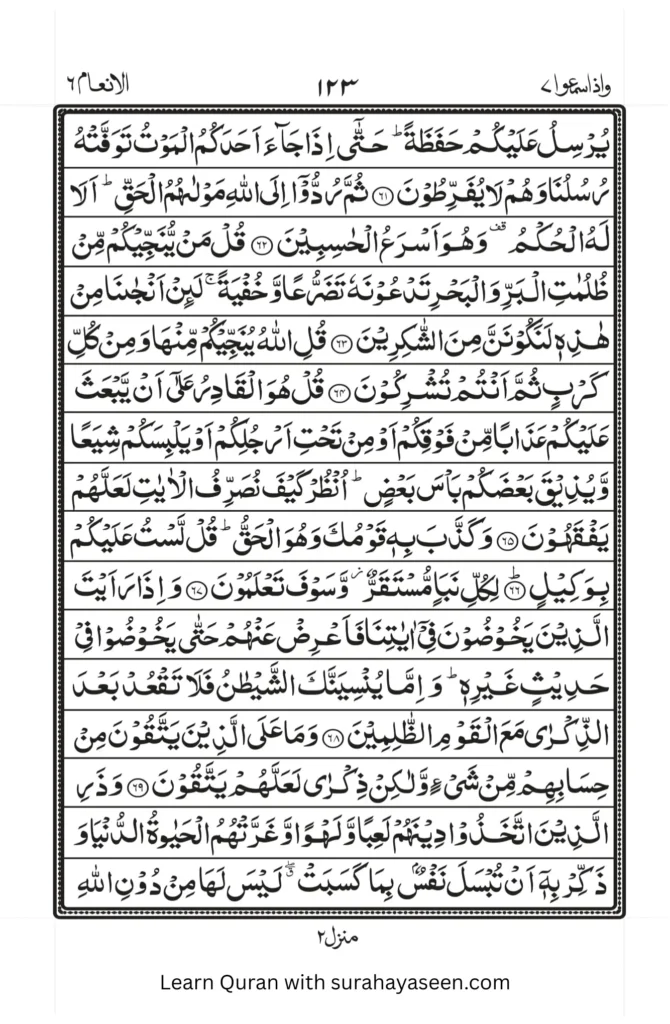 واذاسمعوا٧ ١٢٣ الانعام٦
يُرۡسِلُ عَلَيۡكُمۡ حَفَظَةً ؕ حَتّٰٓى اِذَا جَآءَ اَحَدَكُمُ الۡمَوۡتُ تَوَفَّتۡهُ
رُسُلُنَا وَهُمۡ لَا يُفَرِّطُوۡنَ ﴿۶۱﴾ ثُمَّ رُدُّوۡۤا اِلَى اللّٰهِ مَوۡلٰٮهُمُ الۡحَـقِّ ؕ اَلَا
لَهُ الۡحُكۡمُ ۟ وَهُوَ اَسۡرَعُ الۡحٰسِبِيۡنَ ﴿۶۲﴾ قُلۡ مَنۡ يُّنَجِّيۡكُمۡ مِّنۡ
ظُلُمٰتِ الۡبَرِّ وَالۡبَحۡرِ تَدۡعُوۡنَهٗ تَضَرُّعًا وَّخُفۡيَةً ۚ لَٮِٕنۡ اَنۡجٰٮنَا مِنۡ
هٰذِهٖ لَـنَكُوۡنَنَّ مِنَ الشّٰكِرِيۡنَ ﴿۶۳﴾ قُلِ اللّٰهُ يُنَجِّيۡكُمۡ مِّنۡهَا وَمِنۡ كُلِّ
كَرۡبٍ ثُمَّ اَنۡـتُمۡ تُشۡرِكُوۡنَ ﴿۶۴﴾ قُلۡ هُوَ الۡقَادِرُ عَلٰٓى اَنۡ يَّبۡعَثَ
عَلَيۡكُمۡ عَذَابًا مِّنۡ فَوۡقِكُمۡ اَوۡ مِنۡ تَحۡتِ اَرۡجُلِكُمۡ اَوۡ يَلۡبِسَكُمۡ شِيَـعًا
وَّيُذِيۡقَ بَعۡضَكُمۡ بَاۡسَ بَعۡضٍ ؕ اُنْظُرۡ كَيۡفَ نُصَرِّفُ الۡاٰيٰتِ لَعَلَّهُمۡ
يَفۡقَهُوۡنَ ﴿۶۵﴾ وَكَذَّبَ بِهٖ قَوۡمُكَ وَهُوَ الۡحَـقُّ ؕ قُلۡ لَّسۡتُ عَلَيۡكُمۡ
بِوَكِيۡلٍ ؕ ﴿۶۶﴾ لِكُلِّ نَبَاٍ مُّسۡتَقَرٌّ ۫ وَّسَوۡفَ تَعۡلَمُوۡنَ ﴿۶۷﴾ وَاِذَا رَاَيۡتَ
الَّذِيۡنَ يَخُوۡضُوۡنَ فِىۡۤ اٰيٰتِنَا فَاَعۡرِضۡ عَنۡهُمۡ حَتّٰى يَخُوۡضُوۡا فِىۡ
حَدِيۡثٍ غَيۡرِهٖ ؕ وَاِمَّا يُنۡسِيَنَّكَ الشَّيۡطٰنُ فَلَا تَقۡعُدۡ بَعۡدَ
الذِّكۡرٰى مَعَ الۡقَوۡمِ الظّٰلِمِيۡنَ ﴿۶۸﴾ وَمَا عَلَى الَّذِيۡنَ يَتَّقُوۡنَ مِنۡ
حِسَابِهِمۡ مِّنۡ شَىۡءٍ وَّلٰـكِنۡ ذِكۡرٰى لَعَلَّهُمۡ يَتَّقُوۡنَ ﴿۶۹﴾ وَذَرِ
الَّذِيۡنَ اتَّخَذُوۡا دِيۡنَهُمۡ لَعِبًا وَّلَهۡوًا وَّغَرَّتۡهُمُ الۡحَيٰوةُ الدُّنۡيَا وَ
ذَكِّرۡ بِهٖۤ اَنۡ تُبۡسَلَ نَفۡسٌۢ بِمَا كَسَبَتۡ ۖ لَـيۡسَ لَهَا مِنۡ دُوۡنِ اللّٰهِ
منزل٢
Learn Quran with surahayaseen.com